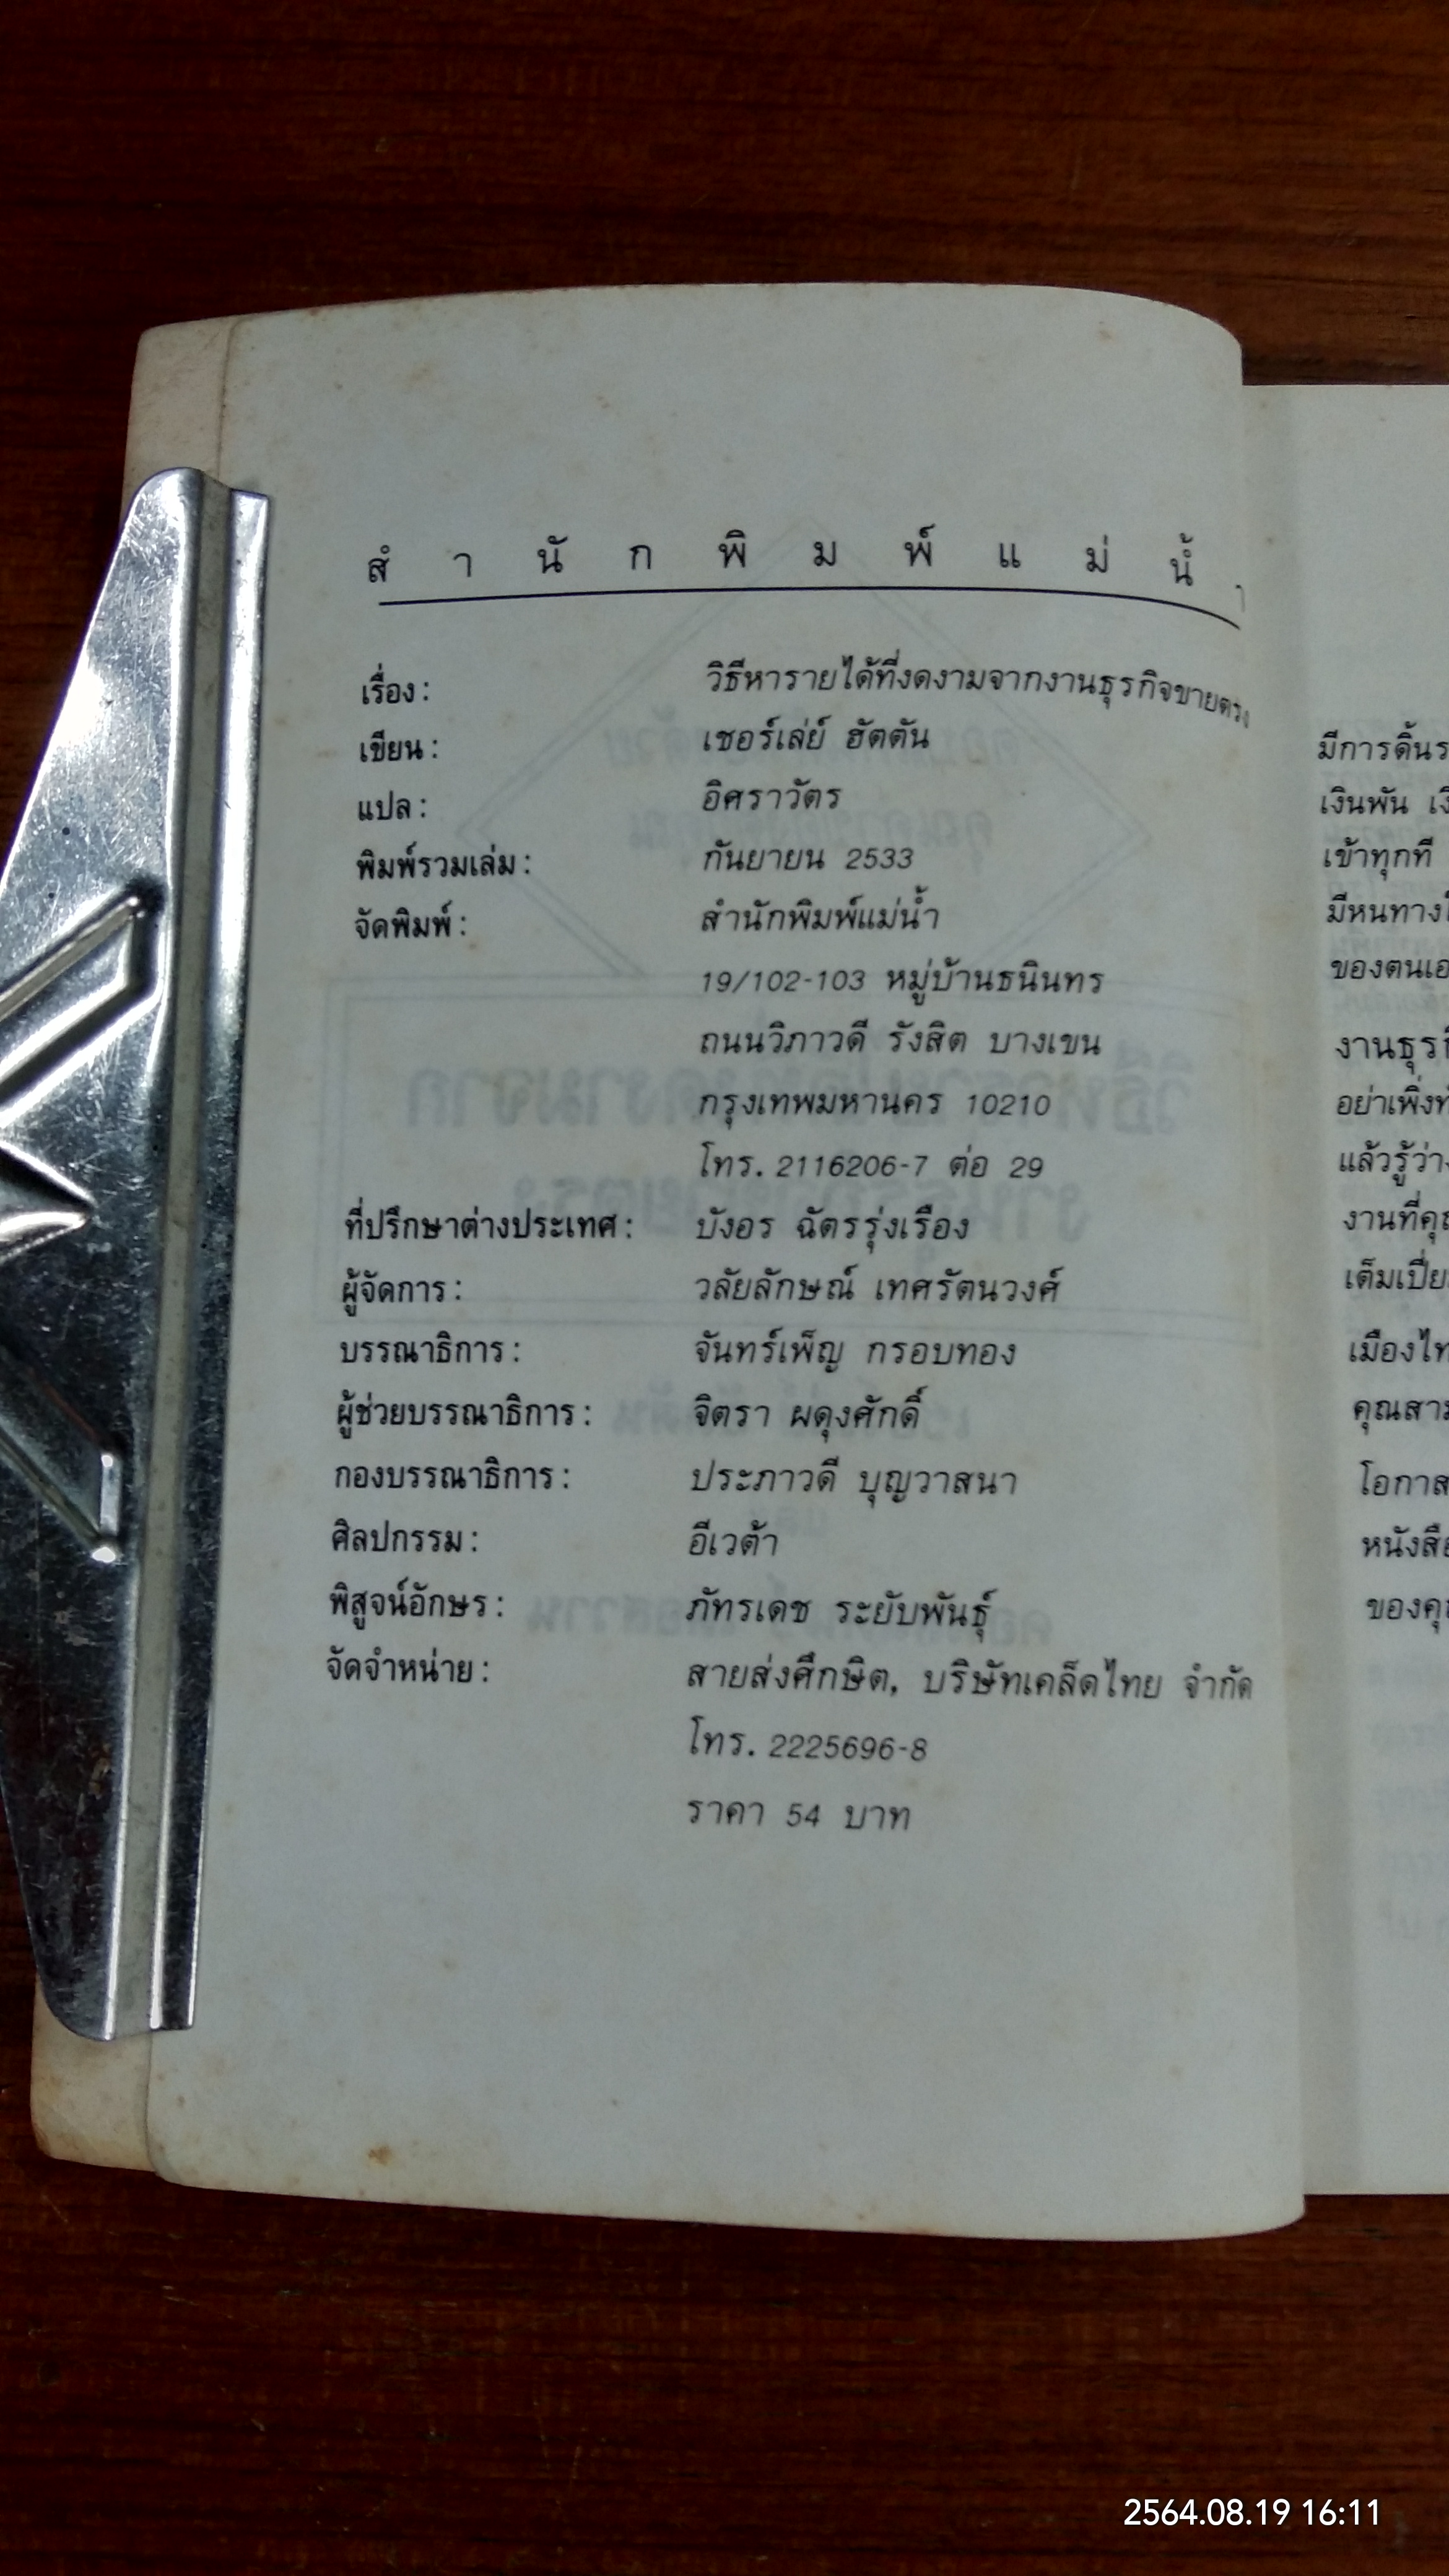 สำนักพิมพ์แม่น้ำ
เรื่อง: วิธีหารายได้ที่งดงามจากงานธุรกิจขายตรง
เขียน: เชอร์เล่ย์ ฮัตตัน
แปล: อิศราวัตร
พิมพ์รวมเล่ม: กันยายน 2533
จัดพิมพ์: สำนักพิมพ์แม่น้ำ
19/102-103 หมู่บ้านธนินทร
ถนนวิภาวดี รังสิต บางเขน
กรุงเทพมหานคร 10210
โทร. 2116206-7 ต่อ 29
ที่ปรึกษาต่างประเทศ: บังอร ฉัตรรุ่งเรือง
ผู้จัดการ: วลัยลักษณ์ เทศรัตนวงศ์
บรรณาธิการ: จันทร์เพ็ญ กรอบทอง
ผู้ช่วยบรรณาธิการ: จิตรา ผดุงศักดิ์
กองบรรณาธิการ: ประภาวดี บุญวาสนา
ศิลปกรรม: อีเวต้า
พิสูจน์อักษร: ภัทรเดช ระยับพันธุ์
จัดจำหน่าย: สายส่งศึกษิต, บริษัทเคล็ดไทย จำกัด
โทร. 2225696-8
ราคา 54 บาท
มีการดิ้นร
เงินพัน
เข้าทุกที
มีหนทาง
ของตนเอ
งานธุรกิ
อย่าเพิ่ง
แล้วรู้ว่า
งานที่คุณ
เต็มเปี่ย
เมืองไท
คุณสาม
โอกาส
หนังสือ
ของคุณ
2564.08.19 16:11